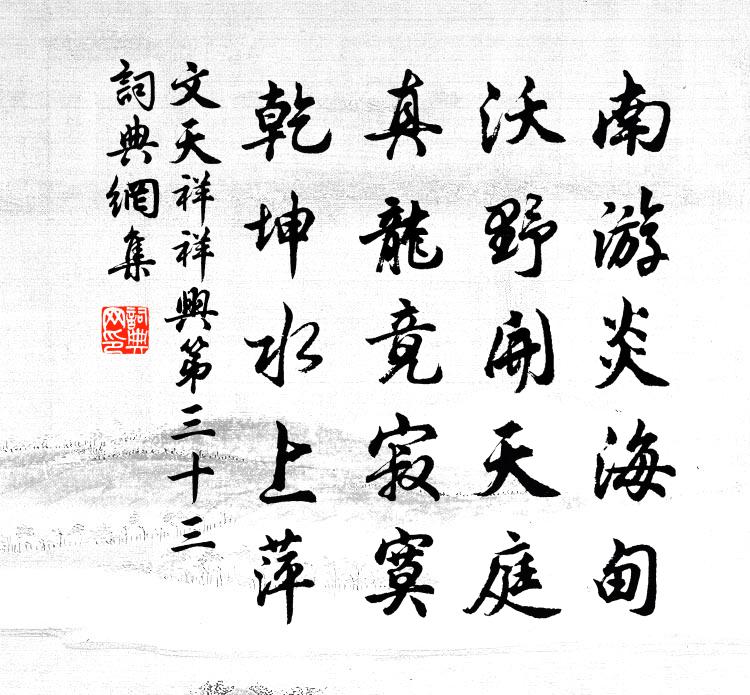 南游炎海甸
沃野開天庭
真龍竟寂寞
乾坤水上萍
文天祥祥興第三十三
詞典網集
詞典网印